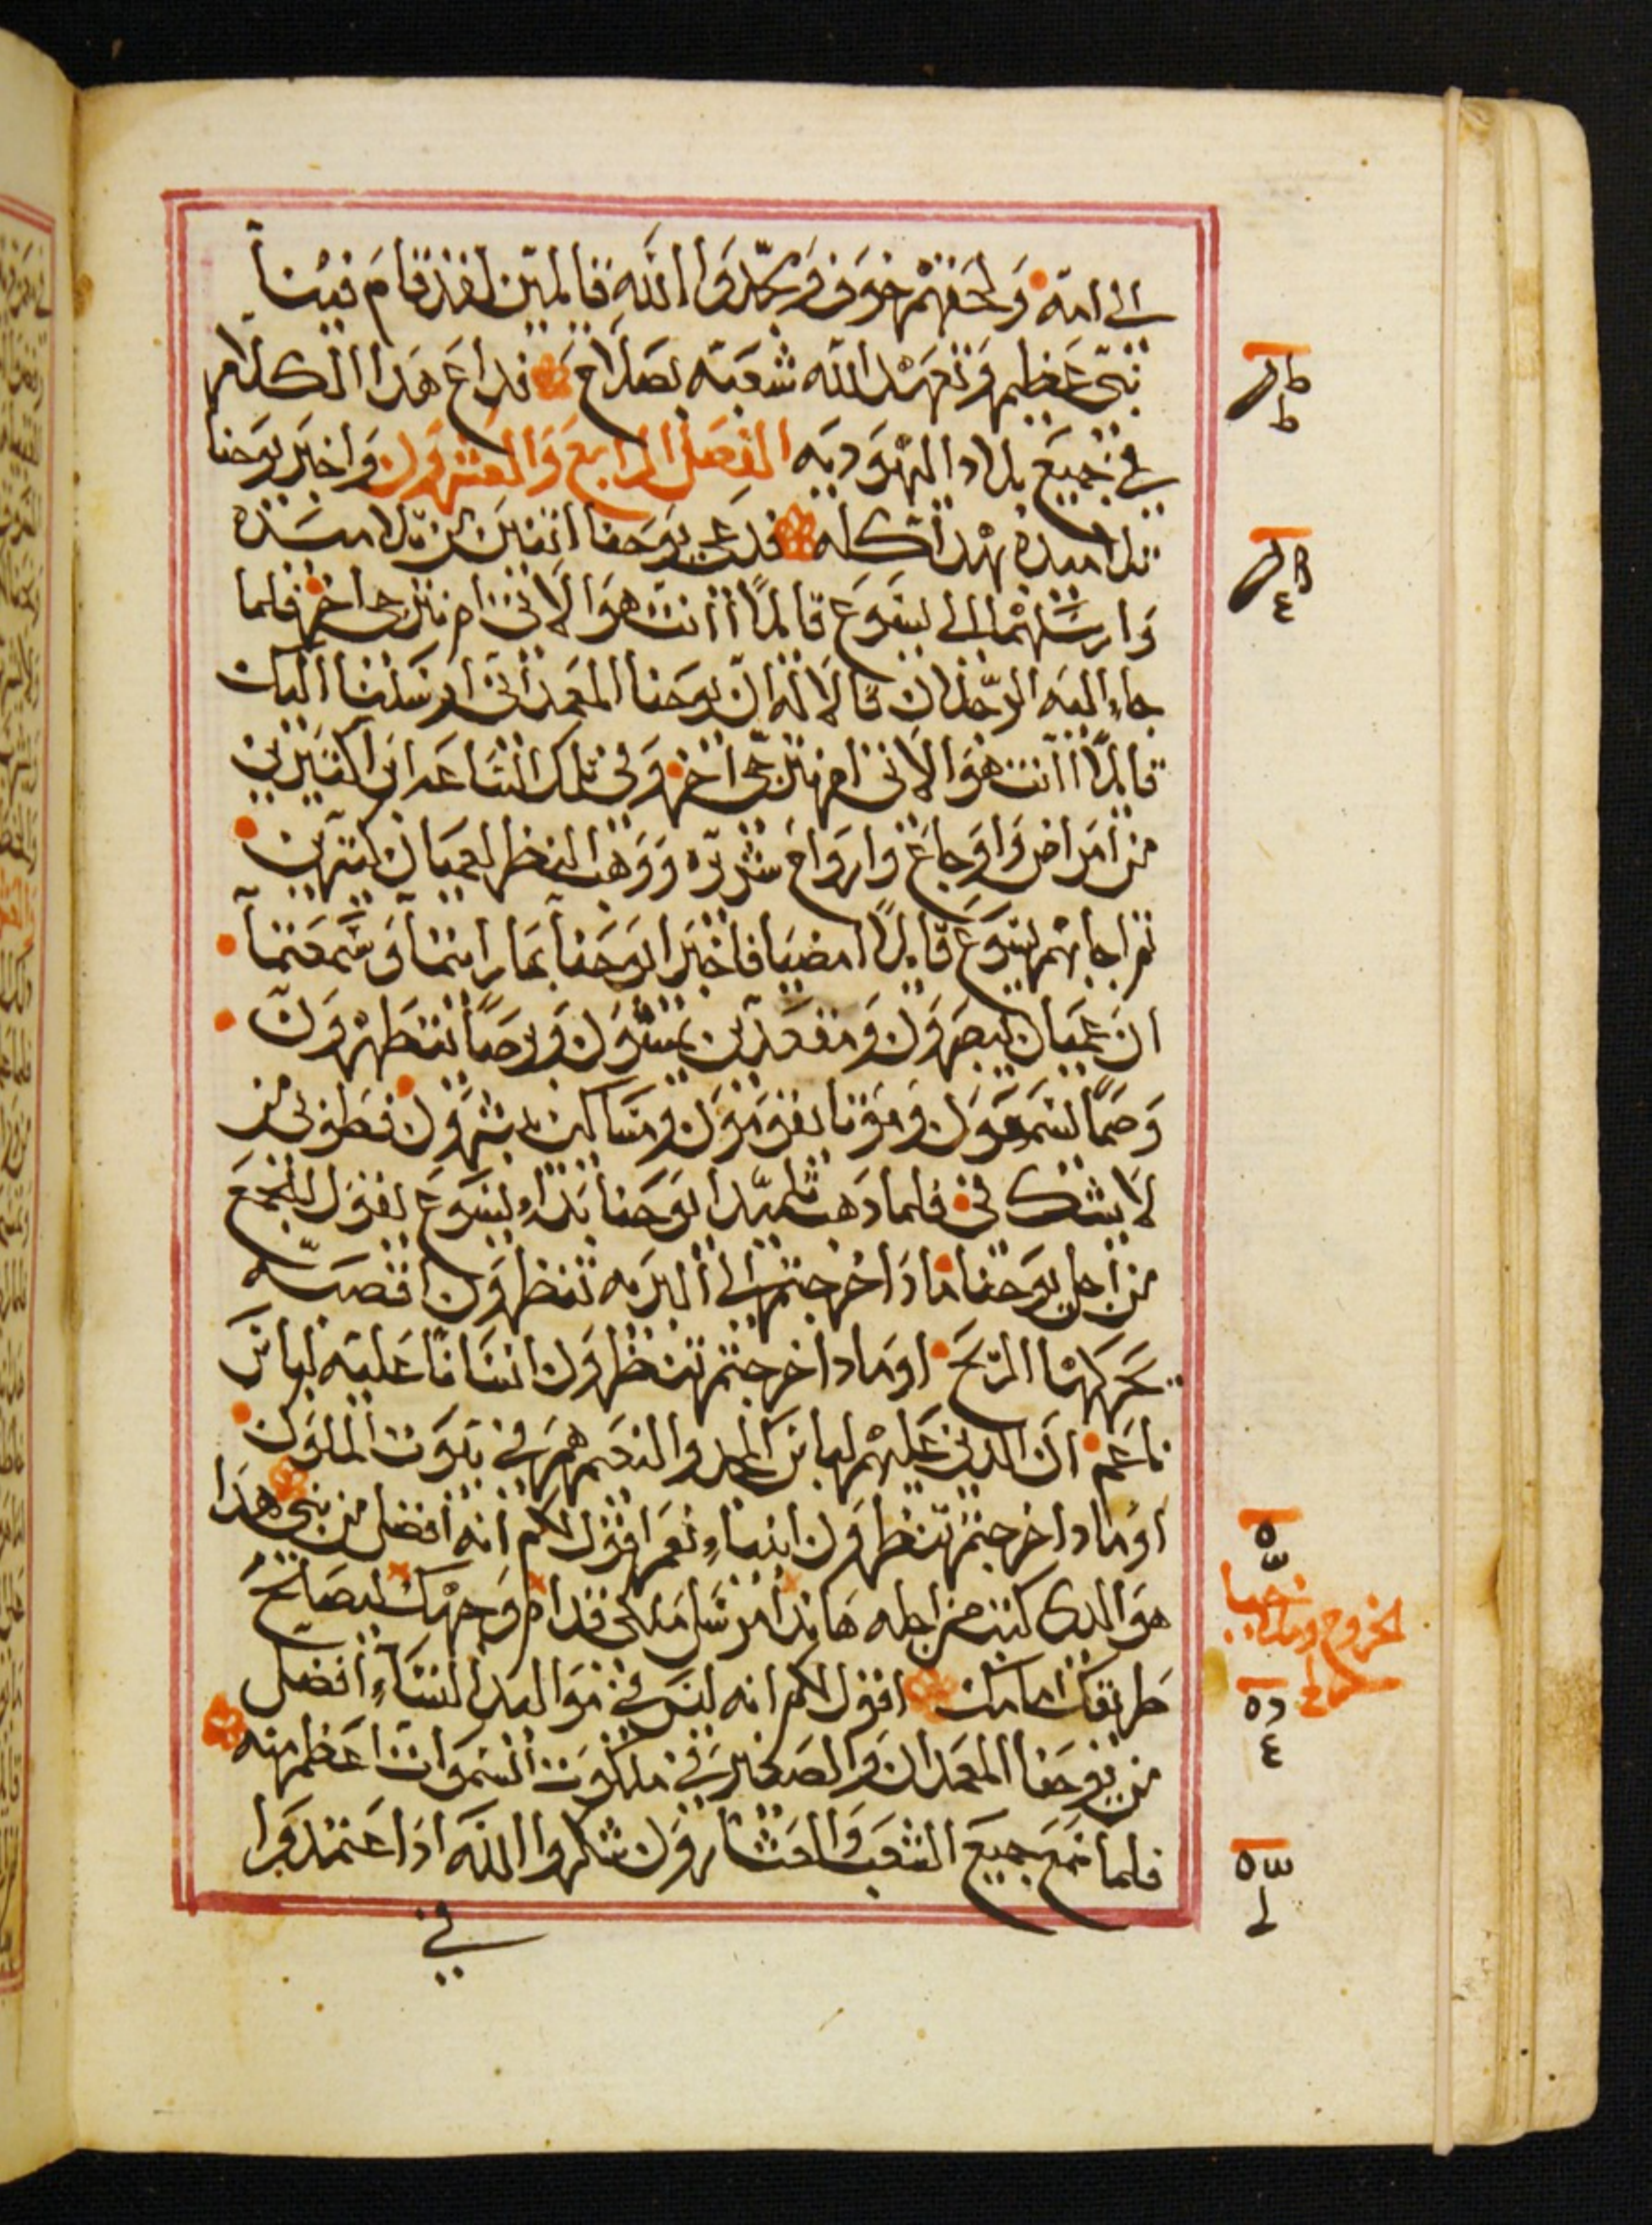 الى امه وَلحقهم خوف ومجّدوا اللّه قايلين لقد قام فينا
نبىّ عظيم وتعهد اللّه شعبه بصلاح فداع هدا الكلام
في جميع بلاد اليهوديه الفصل الرابع والعشرون واخبر يوحنا
تلاميده بهدا كله فدعى يوحنا اتنين من تلاميده
وارسلهما الى يسوع قايلاً اانت هو الاتى ام نترجى اخر فلما
جاء اليه الرجلان قالا له ان يوحنا المعمدانى ارسلنا اليك
قايلاً اانت هو الاتى ام نترجى اخر وفى تلك الساعه ابرا كتيرين
من امراض واوجاع وارواح شريره ووهب النظر لعميان كتيرين
تم اجابهم يسوع قايلاً امضيا فاخبرا يوحنا بما رايتما وسمعتما
ان عميان يبصرون ومقعدين يمشون وبرصاً يتطهرون
وصمًا يسمعون وموتا يقومون ومساكين يبشرون فطوبى لمن
لا يشك فى فلما دهب تلميدا يوحنا بداء يسوع يقول للجمع
من اجل يوحنا ما دا خرجتم الى البريه تنظرون اقصبه
تحركها الريح او مادا خرجتم تنظرون انسانا عليه لباس
ناعم ان الدين عليهم لباس المجد والنعيم هم في بيوت الملوك
او مادا خرجتم تنظرون انبياء نعم اقول لكم انه افضل من نبى هدا
هو الدى كتب من اجله هاندا مرسل ملاكى قدام وجهك ليصلح
طريقك امامك اقول لكم انه ليس في مواليد النساء افضل
من يوحنا المعمدان والصغير في ملكوت السموات اعظم منه
فلما سمع جميع الشعب والعشارون شكروا اللّه ادا عتمدوا
في
الخروج وملاخيا